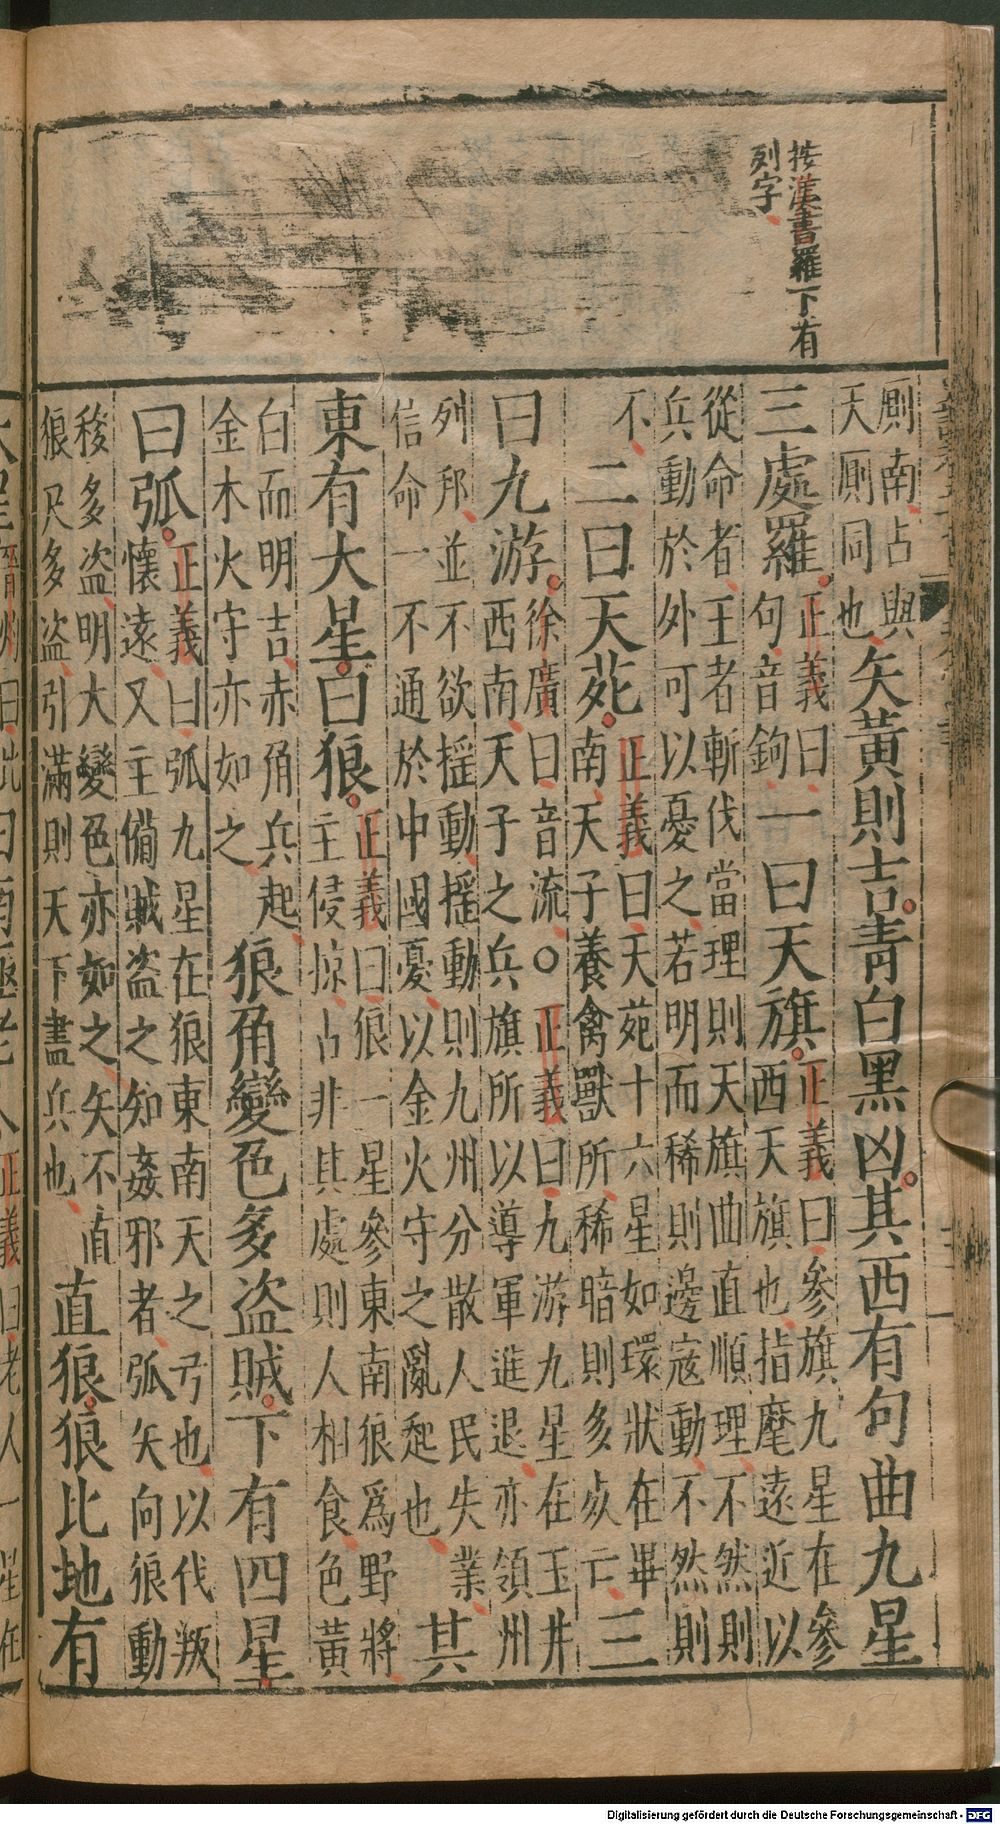 按漢書羅下有
列字
厠南占與
天厠同也
矢黃則吉青白黑凶其西有句曲九星
三處羅
正義曰
句音鉤
一曰天旗
正義曰參旗九星在參
西天旗也指麾遠近以
從命者王者斬伐當理則天旗曲直順理不然則
兵動於外可以憂之若明而稀則邊寇動不然則
不
二曰天苑
正義曰天苑十六星如環狀在畢
南天子養禽獸所稀暗則多死亡
三
曰九游
徐廣曰音流○正義曰九游九星在玉井
西南天子之兵旗所以導軍進退亦領州
列邦並不欲搖動搖動則九州分散人民失業
信命一不通於中國憂以金火守之亂起也
其
東有大星曰狼
正義曰狼一星參東南狼爲野將
主侵掠占非其處則人相食色黃
白而明吉赤角兵起
金木火守亦如之
狼角變色多盜賊下有四星
曰弧
正義曰弧九星在狼東南天之弓也以伐叛
懷遠又主備賊盜之知姦邪者弧矢向狼動
稜多盜明大變色亦如之矢不直
狼尺多盜引滿則天下盡兵也
直狼狼比地有
Digitalisierung gefördert durch die Deutsche Forschungsgemeinschaft - DFG